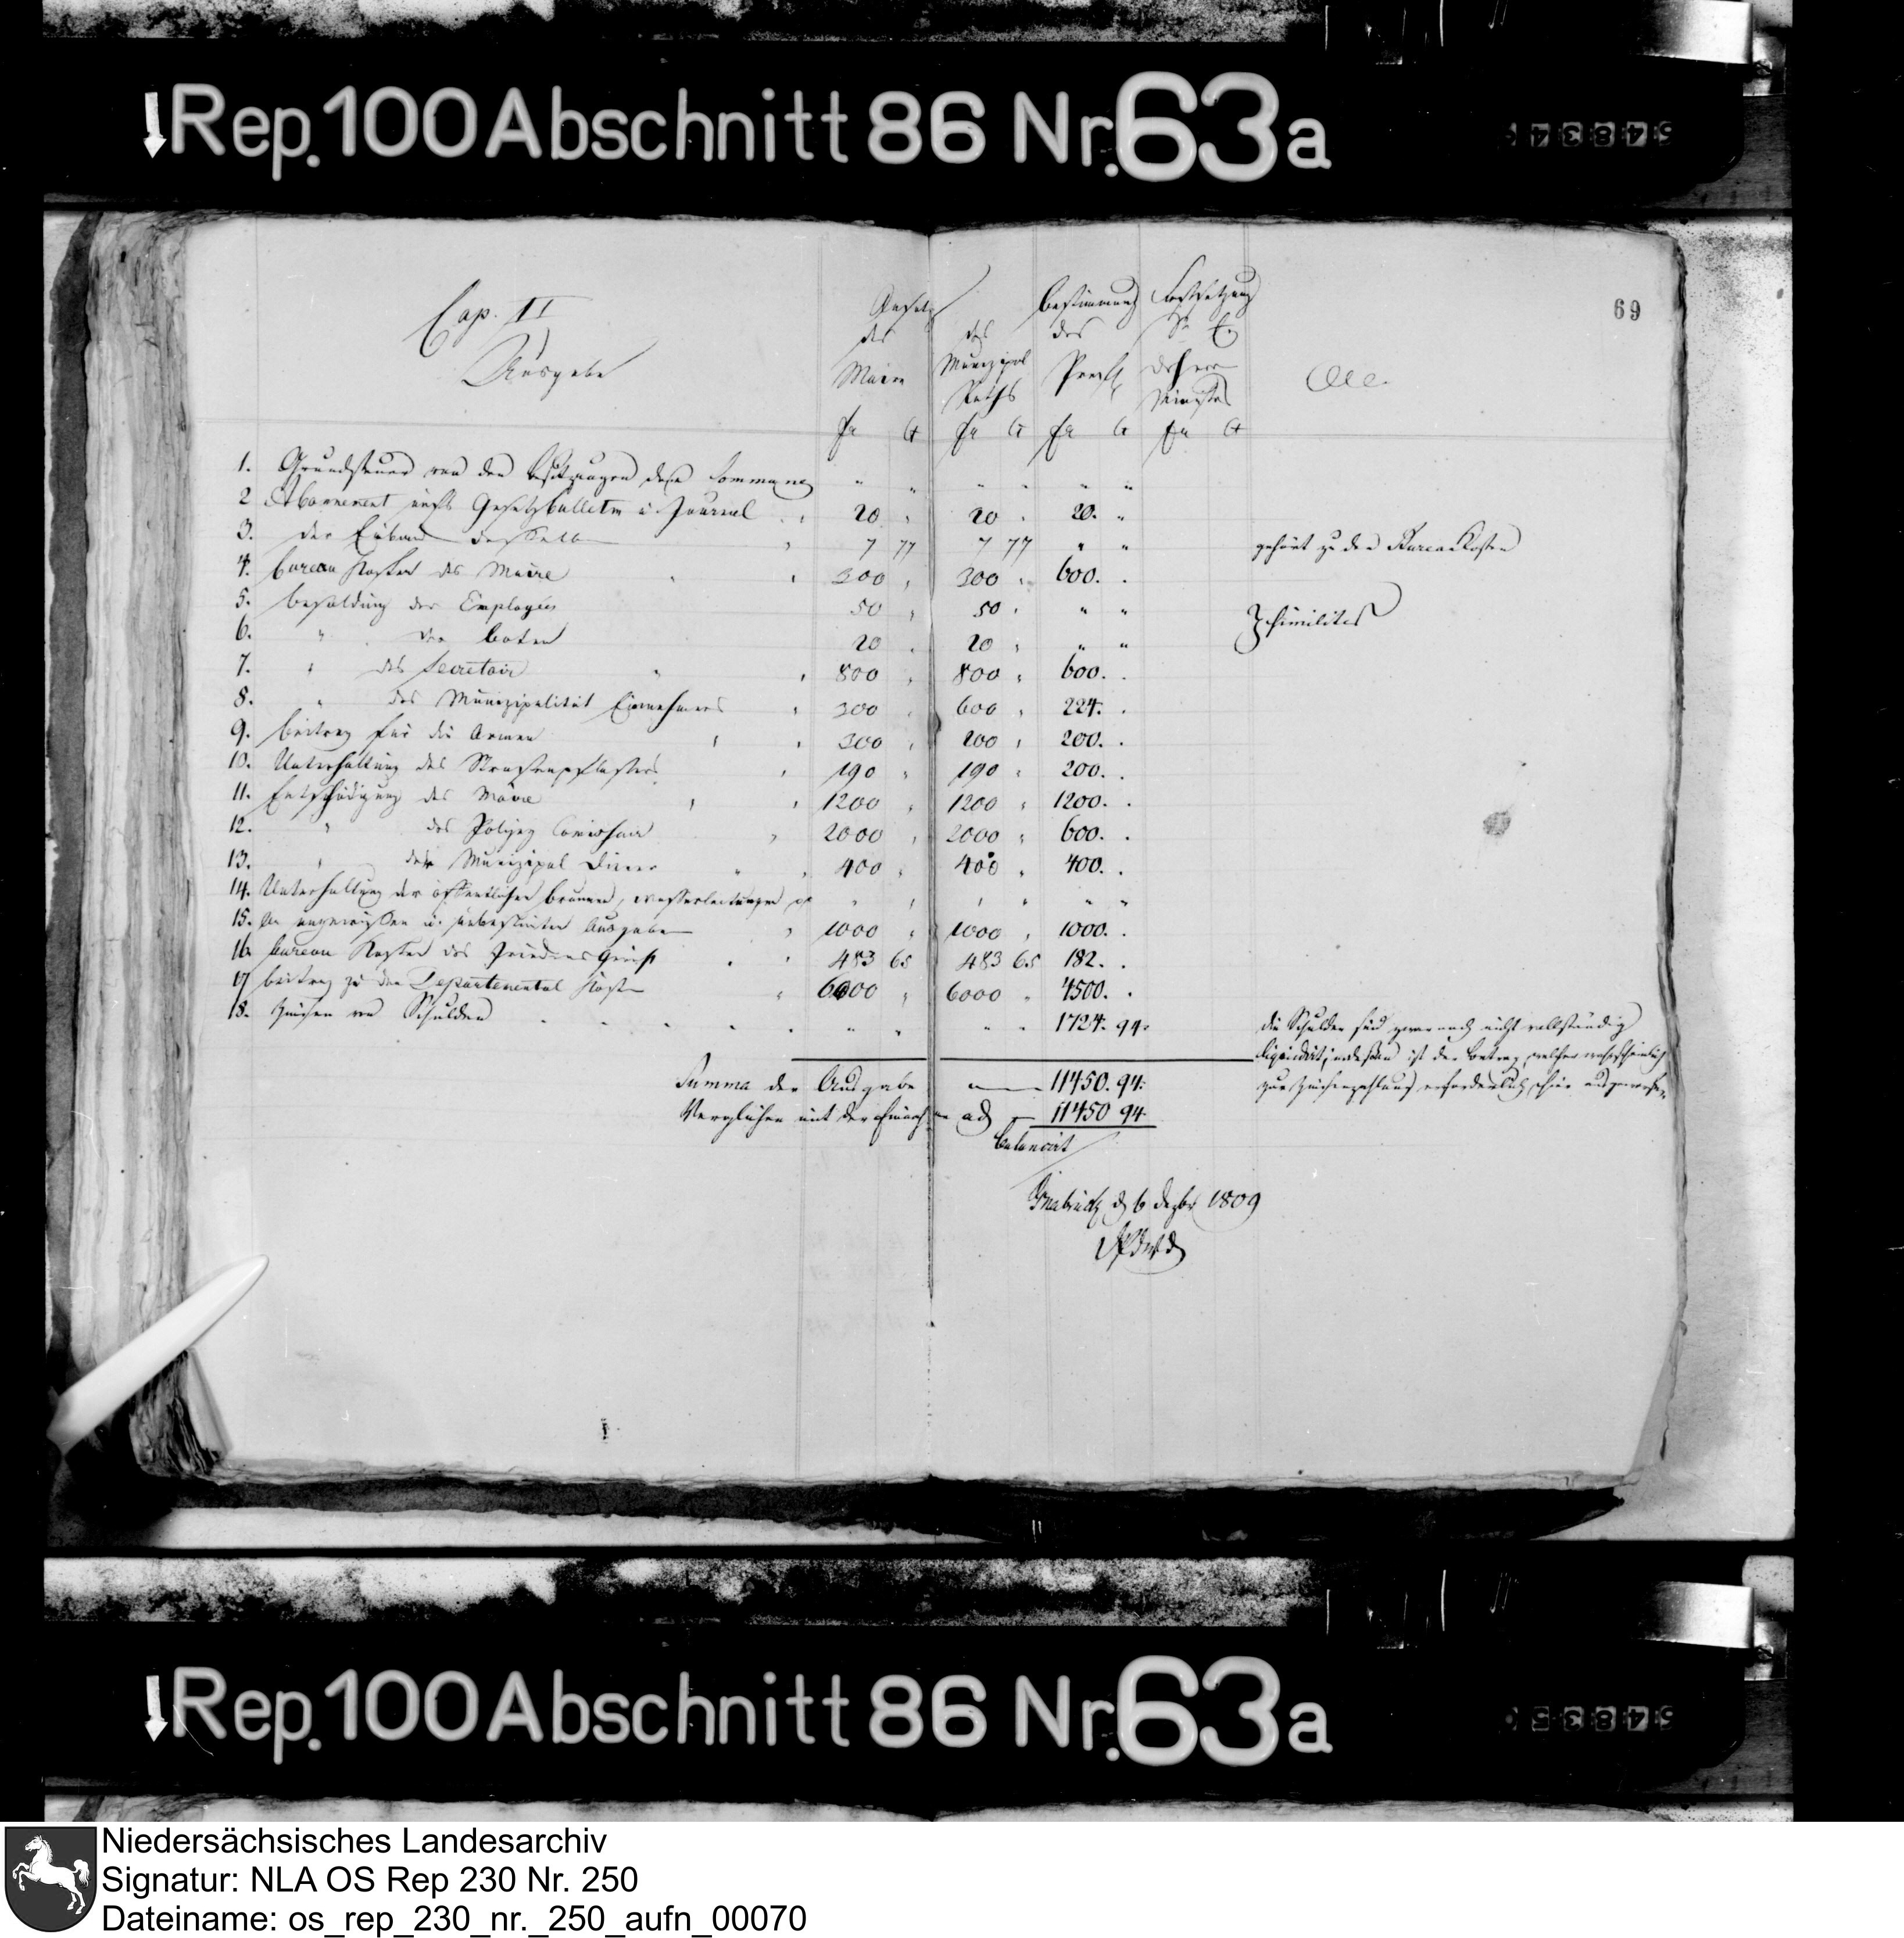 Rep. 100 Abschnitt 86 Nr. 63a
54834
69
Cap. II
Ausgabe
Gesetz
des
Maire
des
Munizipal
Raths
bestimmung
des
Praefs
Festsetzung
Sr E
des Herrn
Ministers
fr Ct fr Ct fr Ct fr Ct
1. Grundsteuer von den Besitzungen der Commune " " " " " "
2 Abonnement aufs Gesetzbulletin u. Journal 20 " 20 " 20. "
3. der Einband desselben 7 77 7 77 " " gehört zu den Bureau Kosten
4. bureau Kosten des Maire 300 " 300 " 600. .
5. besoldung der Employés 50 " 50 " " "
6. " der boten 20 " 20 " " " similiter
7. " des Secretair 800 " 800 " 600. .
8. " des Munizipalität Einnehmers 300 " 600 " 224. .
9. beitrag für die Armen 300 " 200 " 200. .
10. Unterhaltung des Strassenpflasters 190 " 190 " 200. .
11. Entschädigung des Maire 1200 " 1200 " 1200. .
12. " des Polizey Comissair 2000 " 2000 " 600. .
13. " der Munizipal Diener 400 " 400 " 400. .
14. Unterhaltung der öffentlichen brunnen, wasserleitungen pp " " " " " "
15. Zu ungewissen u. unbestimten Ausgaben 1000 " 1000 " 1000. .
16. bureau Kosten des Friedens Gerichts 483 65 483 65 182. .
17 beitrag zu den Departemental Kosten 6000 " 6000 " 4500. .
18. Zinsen von Schulden " " " " 1724. 94.
die Schulden sind zwar noch nicht vollständig
liquidirt; indessen ist der betrag, welcher wahrscheinlich
zur Zinsenzahlung erforderlich, hier ausgeworfen
Summa der Ausgabe 11450. 94.
Verglichen mit der Einnahme ad 11450 94
balancirt
Osnabrück d 6 Dezbr 1809
Rep. 100 Abschnitt 86 Nr. 63a
54835
Niedersächsisches Landesarchiv
Signatur: NLA OS Rep 230 Nr. 250
Dateiname: os_rep_230_nr._250_aufn_00070